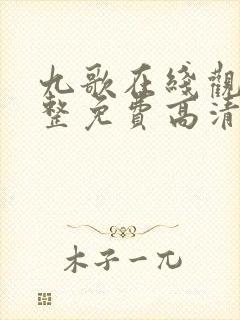 九歌在线觀
整免費高清
木子一兀